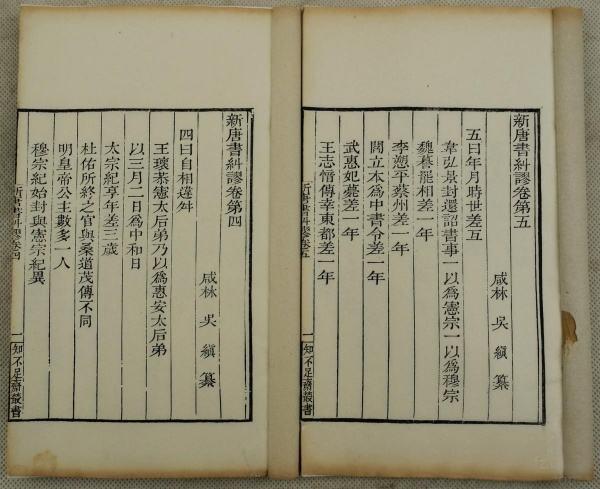 新唐書糾謬卷第五
咸林 吳 縝 纂
五曰年月時世差互
韋弘景封還詔書事一以爲憲宗一以爲穆宗
魏謩罷相差一年
李愬平蔡州差一年
閻立本爲中書令差一年
武惠妃薨差一年
王志愔傳幸東都差一年
新唐書糾謬卷五
一
知不足齋叢書
新唐書糾謬卷第四
咸林 吳 縝 纂
四曰自相違舛
王瓌恭憲太后弟乃以爲惠安太后弟
以三月二日爲中和日
太宗紀享年差三歲
杜佑所終之官與桑道茂傳不同
明皇帝公主數多一人
穆宗紀始封與憲宗紀異
新唐書糾謬卷四
一
知不足齋叢書